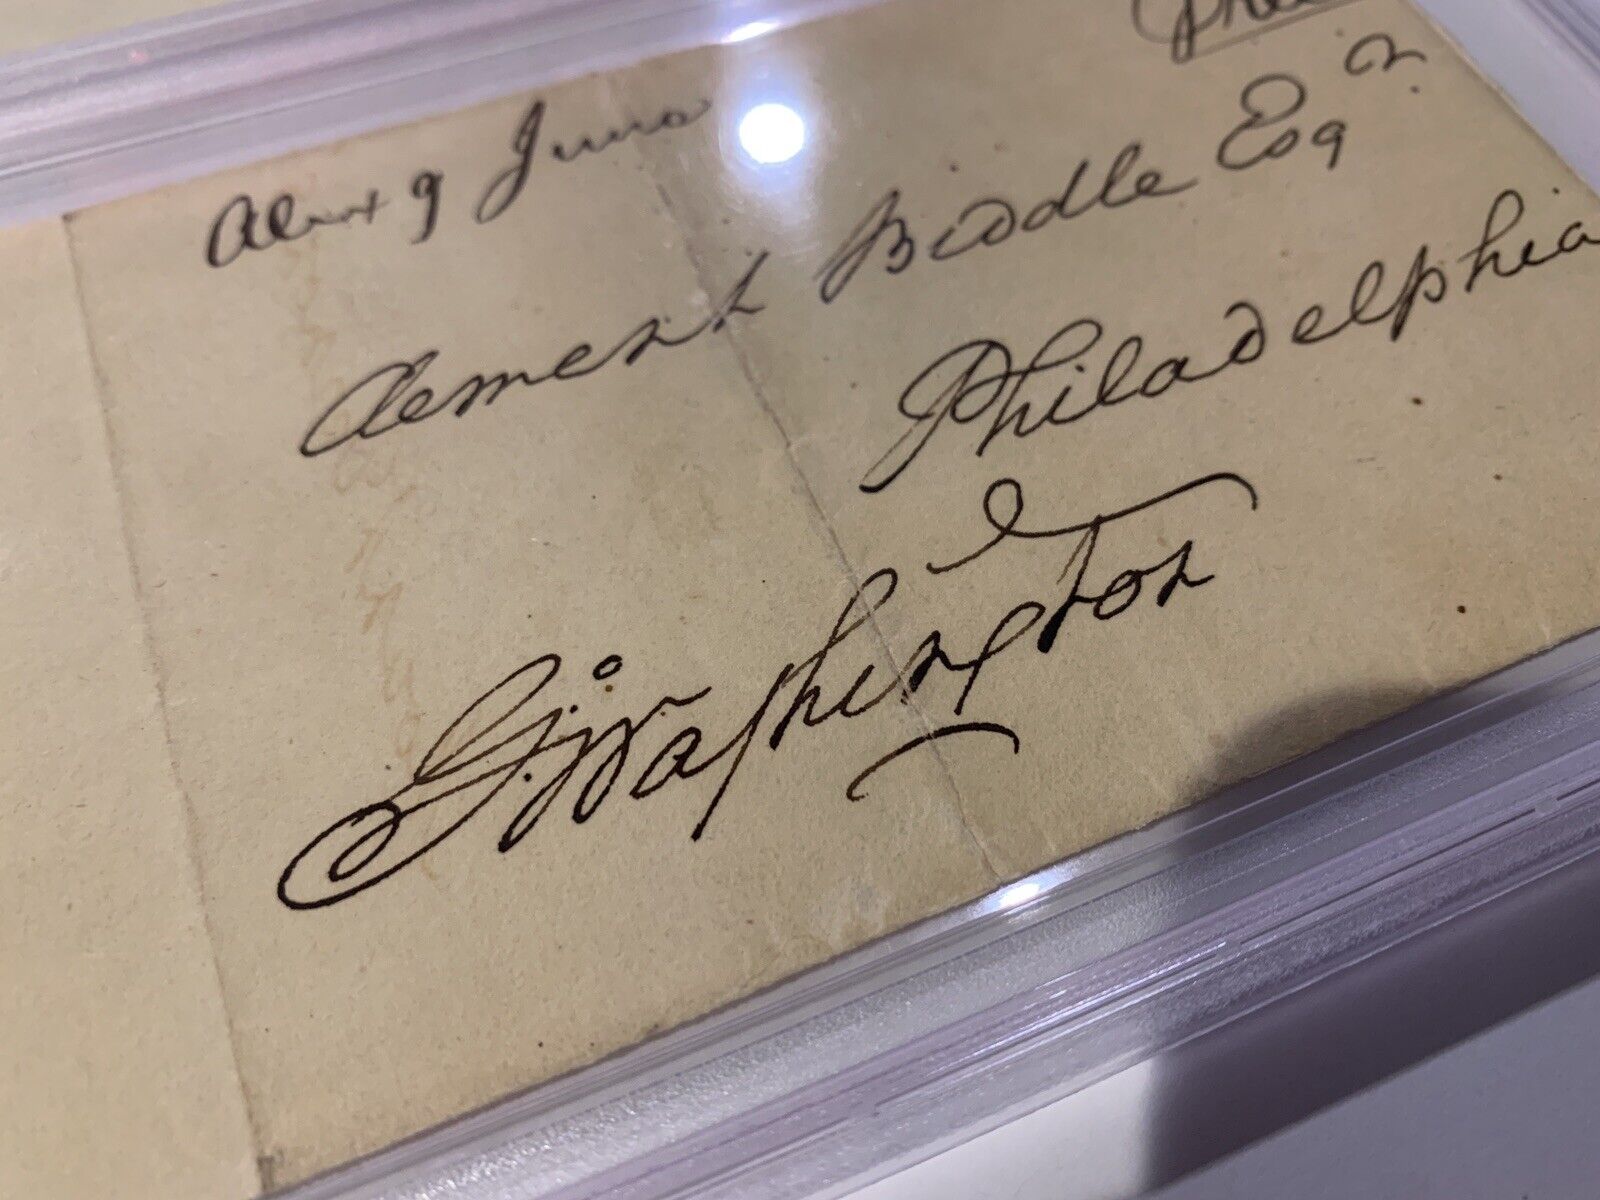 Alex 9 June
Free
Clement Biddle Esqr
Philadelphia
G:Washington